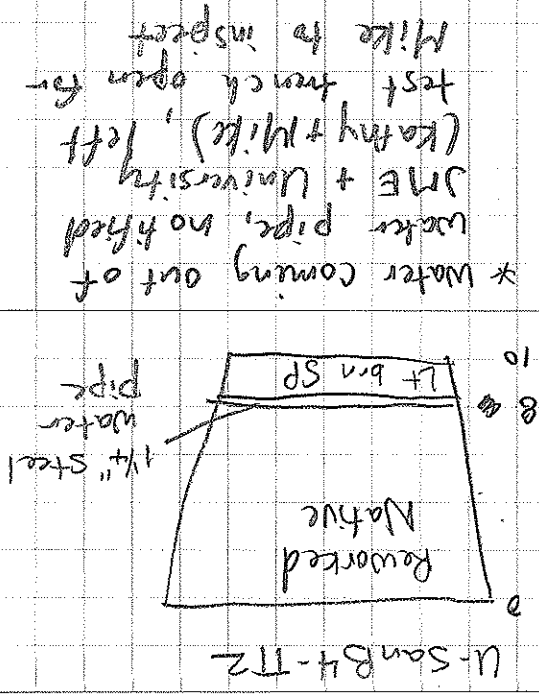 U-SanB4-TT2
0
Reworked
Native
1¼" steel
water
pipe
8
Lt brn SP
10
* Water coming out of
water pipe, notified
JME + University
(Kathy + Mike), left
test trench open for
Mike to inspect